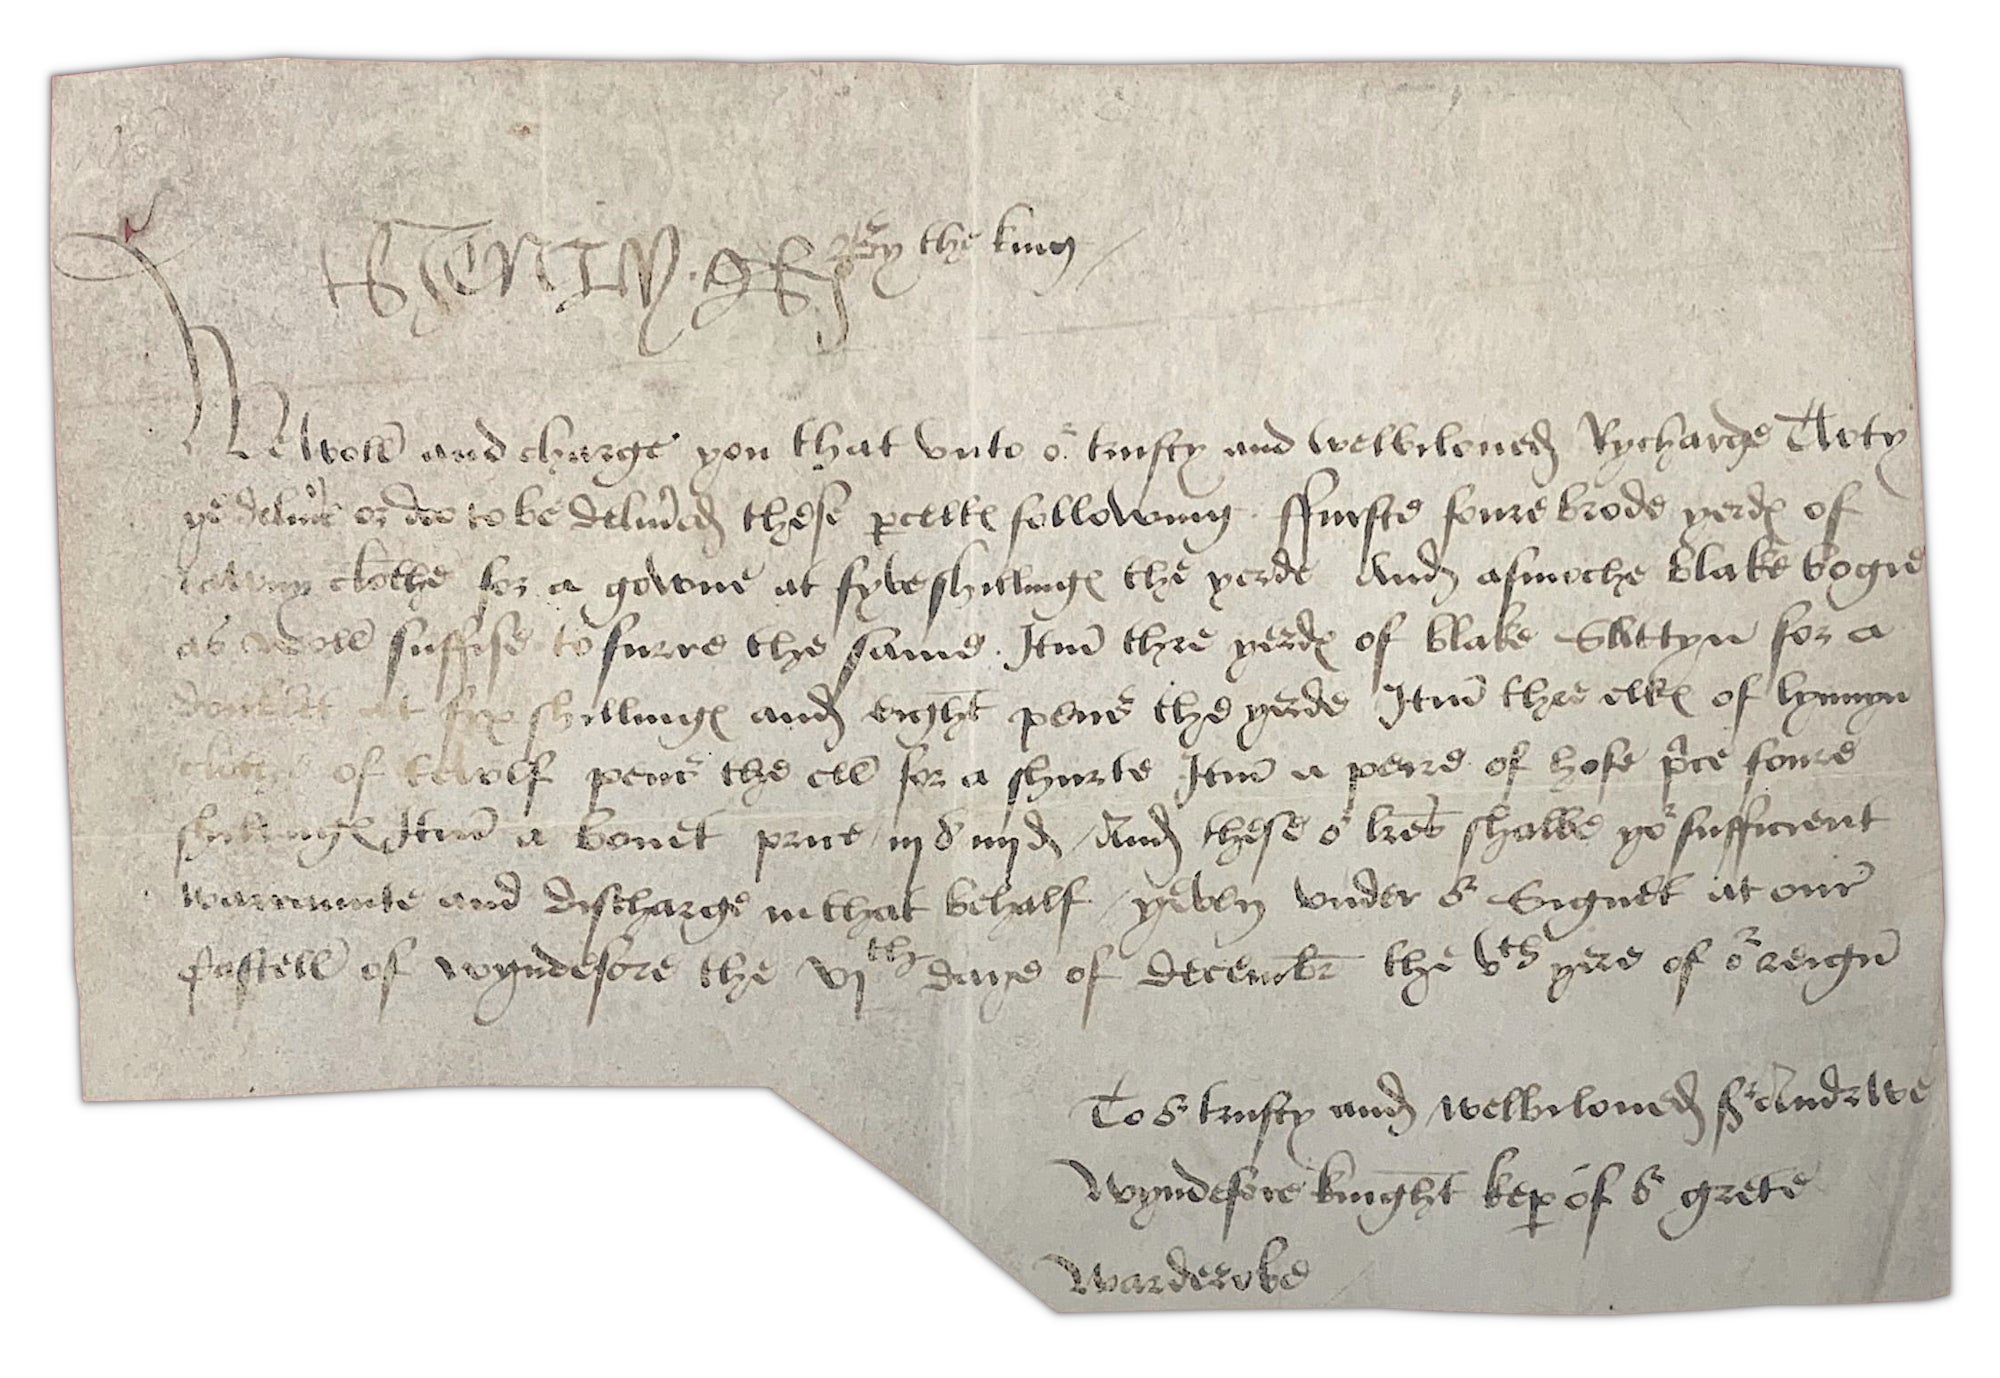 HENRY R By the king
We woll and charge you that vnto oʳ trusty and welbiloued Rycharde
ye deliuͬe or doo to be deliuͬed these ꝑcellꝭ following . ffurste foure brode yerdꝭ of
tawny clothe for a gowne at fyve shillingꝭ the yerde And asmoche blake bogie
as woll suffise to furre the same . Itm̄ thre yerdꝭ of blake Sattyn for a
doublet at syx shillingꝭ and eight penc̄ the yerde Itm̄ thre ellꝭ of lynnyn
clothe of twolf penc̄ the ell for a shurte Itm̄ a peire of hose pͥce foure
shillingꝭ Itm̄ a bonet price iij s iiij d / And these oʳ lr̄es shalbe yoʳ sufficient
warraunte and discharge in that behalf / yeven vnder oʳ Signet at our̄
Castell of wyndesore the vjᵗʰ daye of decembr̄ the vᵗʰ yere of oʳ reign̄
To oʳ trusty and welbiloued sʳ Andrwe
wyndesore knight kep̱ of oʳ grete
warderobe